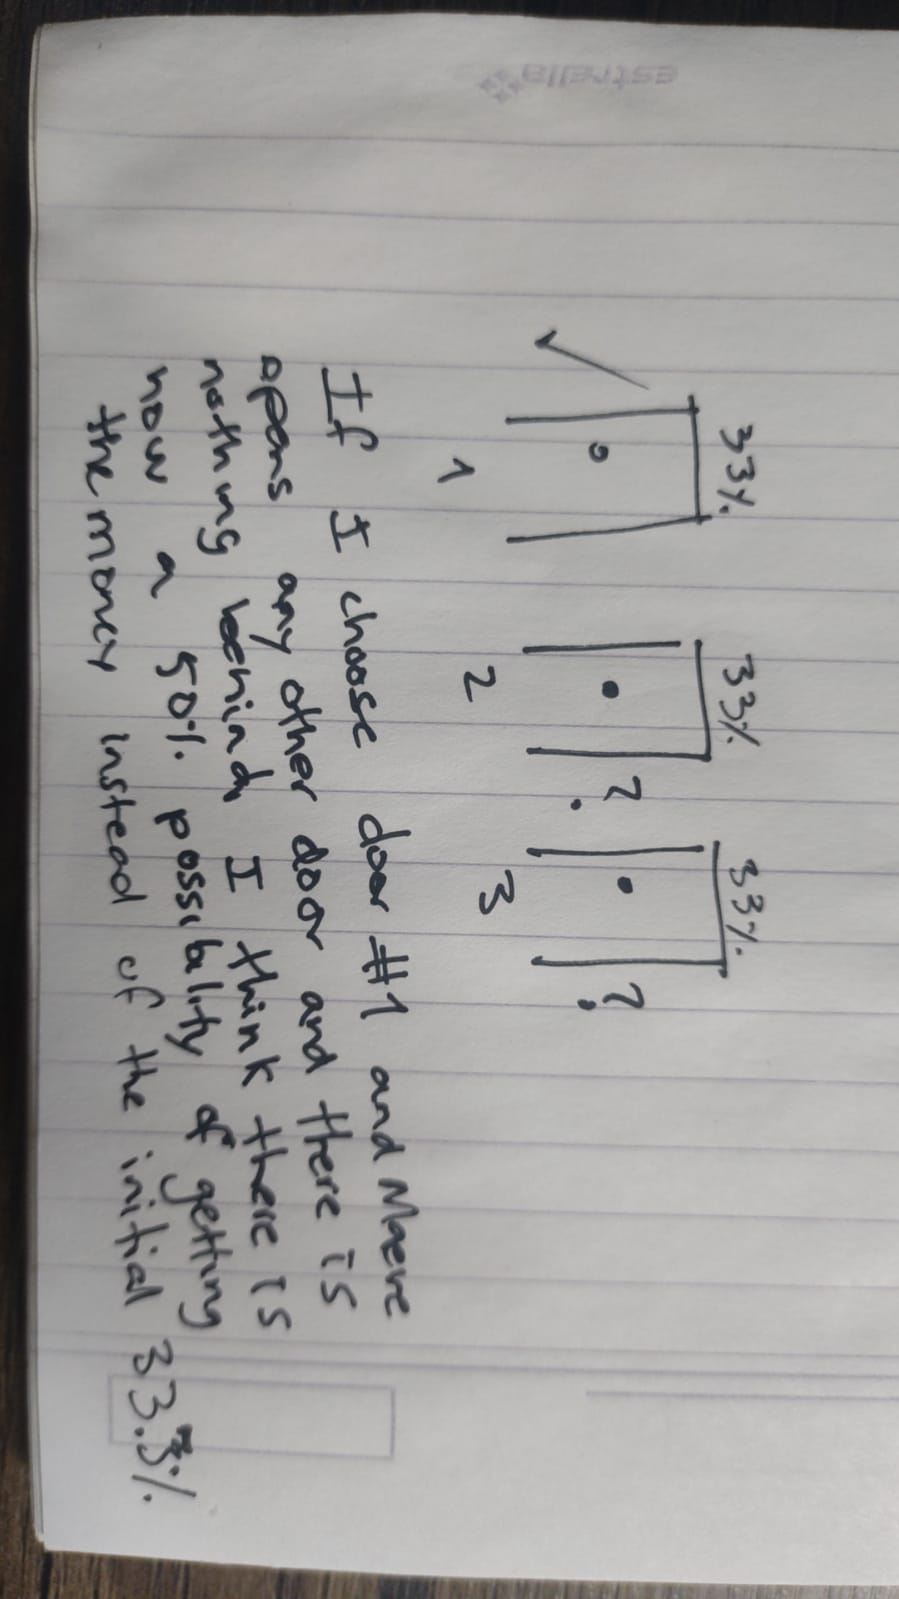 estrella
33% 33% 33%
? ?
1 2 3
If I choose door #1 and Maeve
opens any other door and there is
nothing behind, I think there is
now a 50% possibility of getting
the money instead of the initial 33.3%